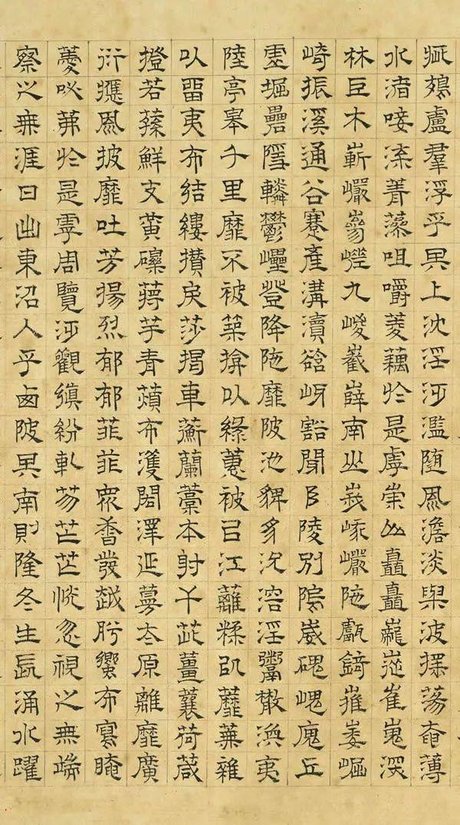 疵鵁盧羣浮乎其上沈淫泛濫隨風澹淡與波搖蕩奄薄
水渚唼喋菁藻咀嚼菱藕於是虖崇山矗矗巃嵸崔嵬深
林巨木嶄巖嵾嵯九嵕巀嶭南山峩峩巖陁甗錡摧崣崛
崎振溪通谷蹇產溝瀆谽呀豁閜阜陵別隝崴磈嵔廆丘
虛堀礨隱轔鬱壘登降陁靡陂池貏豸沇溶淫鬻散渙夷
陸亭皋千里靡不被築揜以綠蕙被以江蘺糅以蘼蕪雜
以留夷布結縷攢戾莎揭車蘅蘭槀本射干茈薑蘘荷葴
橙若蓀鮮支黃礫蔣芧青薠布濩閎澤延蔓太原離靡廣
衍應風披靡吐芳揚烈郁郁菲菲衆香發越肸蠁布寫晻
薆咇茀於是虖周覽泛觀縝紛軋芴芒芒恍忽視之無端
察之無涯日出東沼入乎西陂其南則隆冬生長涌水躍